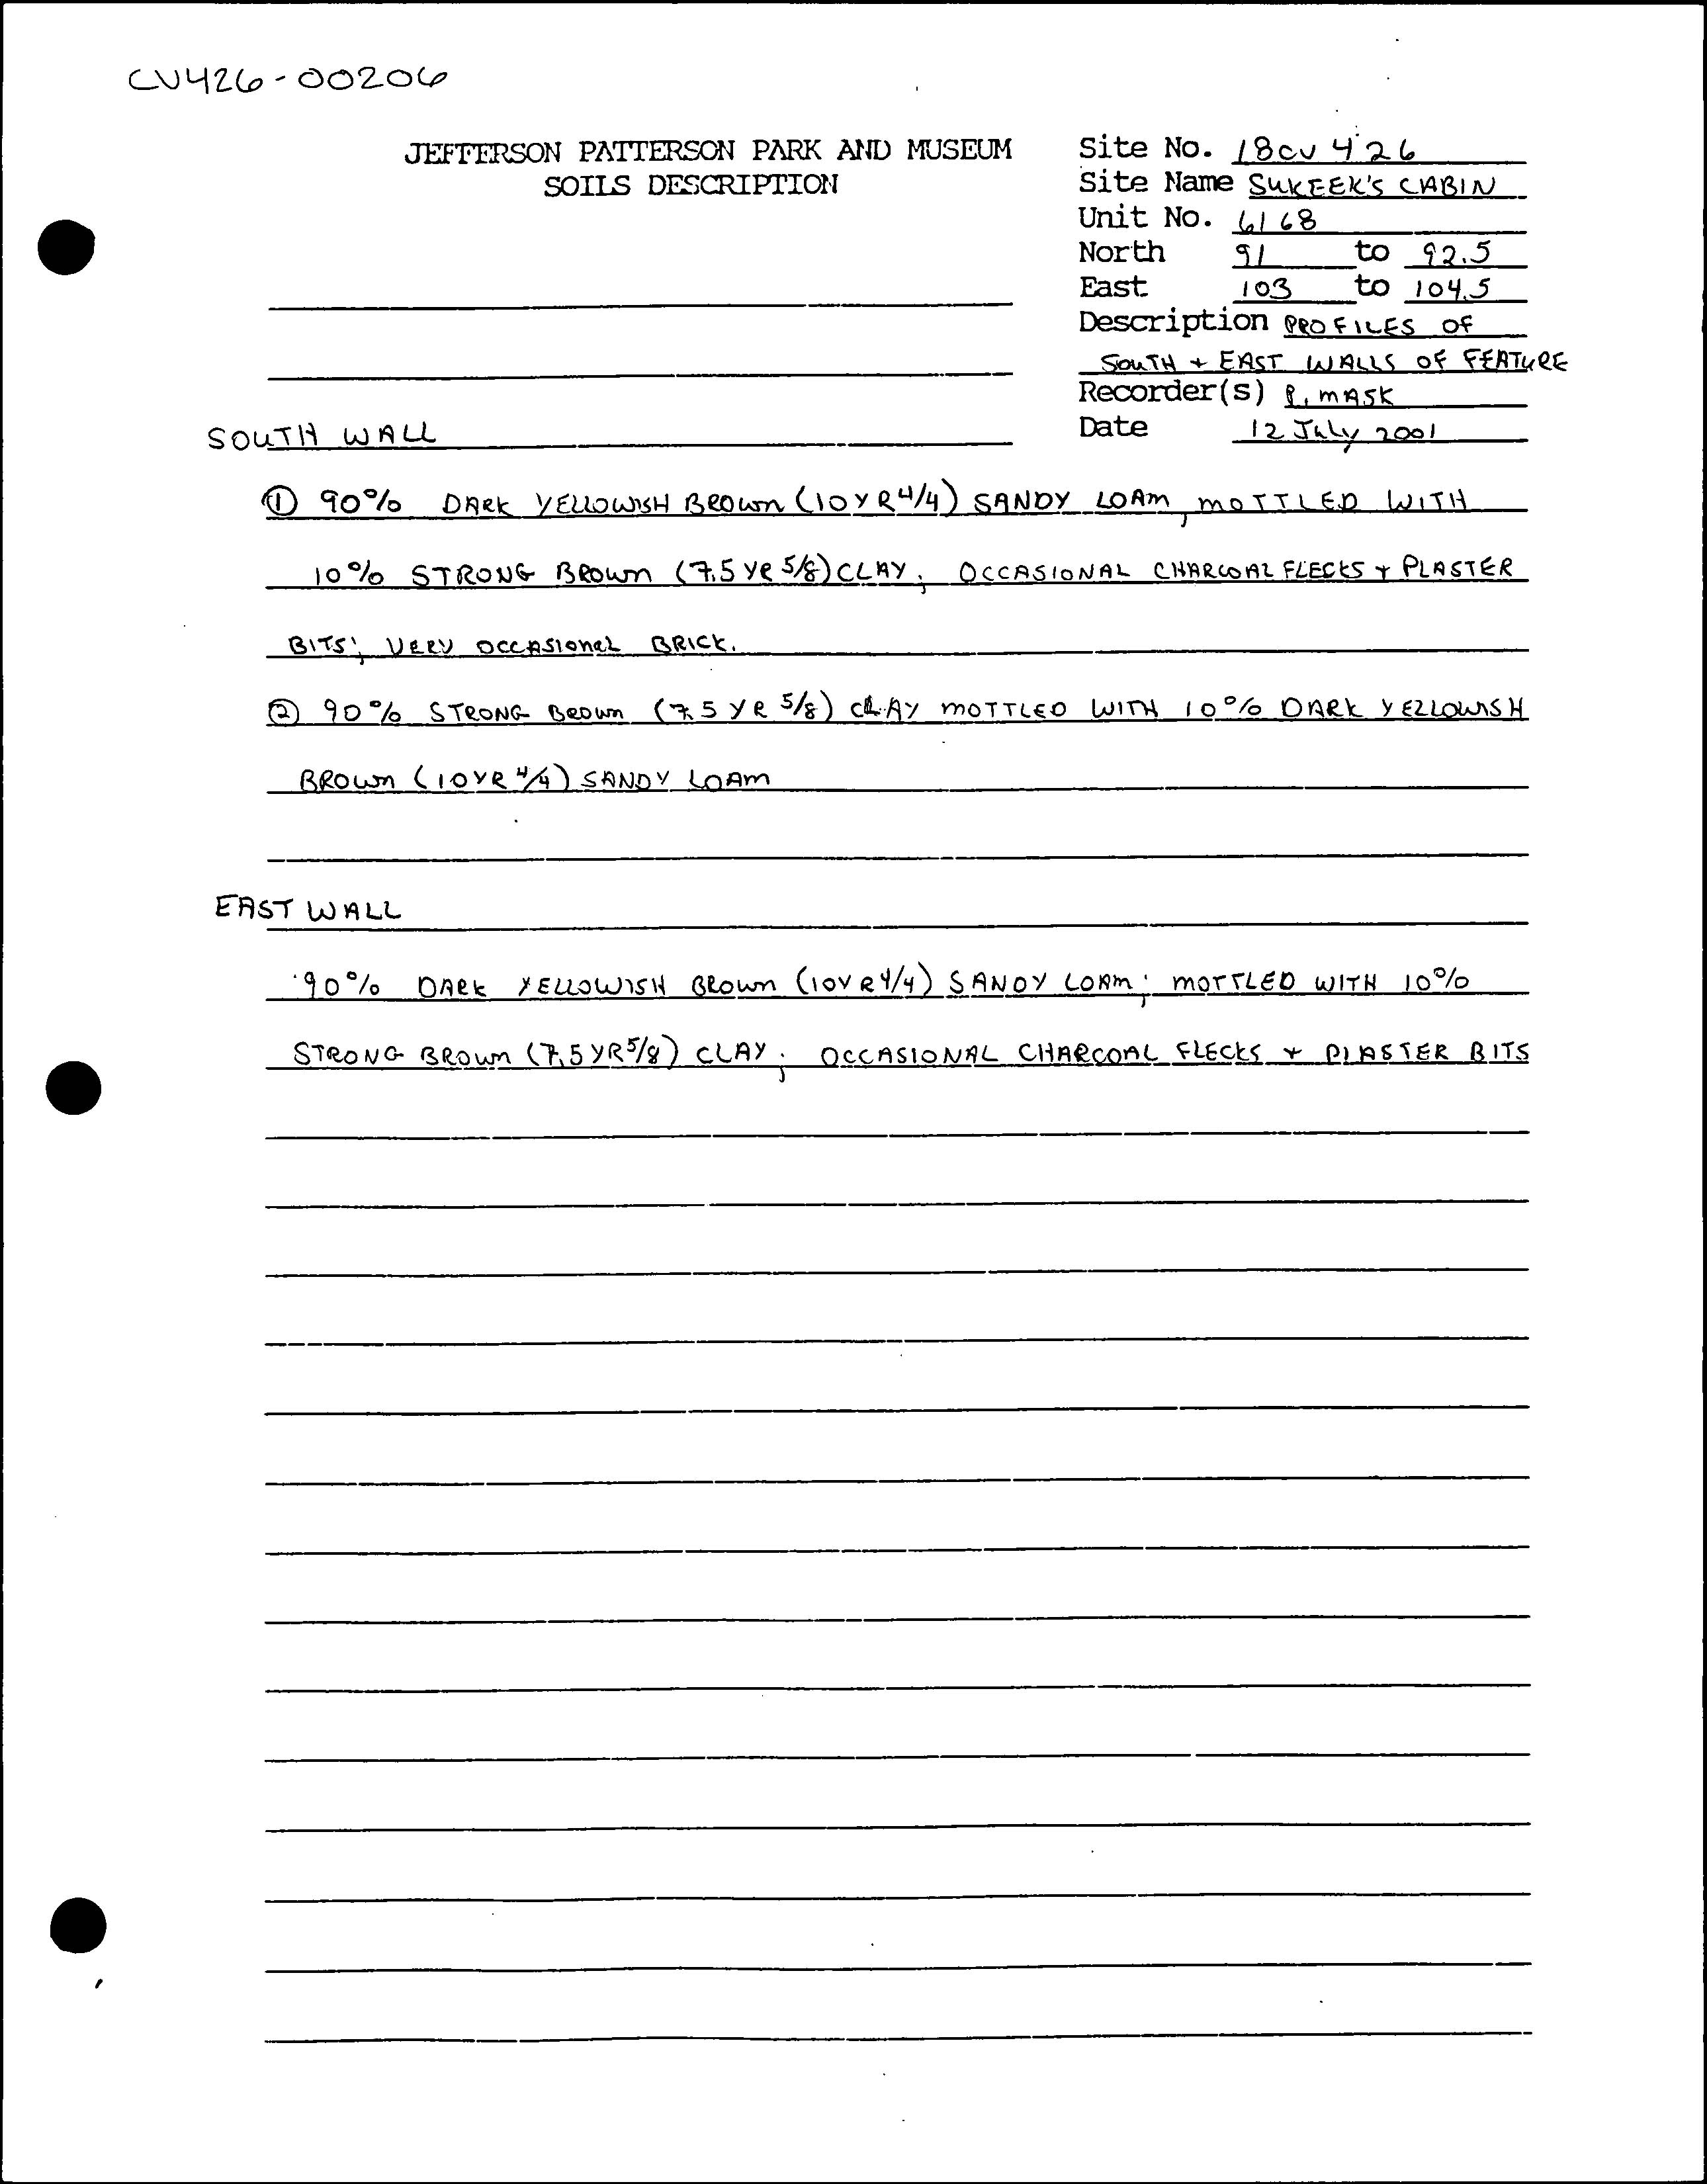 CV426-00206
JEFFERSON PATTERSON PARK AND MUSEUM
SOILS DESCRIPTION
Site No. 18CV 426
Site Name SUKEEK'S CABIN
Unit No. 6168
North 91 to 92.5
East 103 to 104.5
Description PROFILES OF
SOUTH + EAST WALLS OF FEATURE
Recorder(s) P. MASK
Date 12 July 2001
SOUTH WALL
① 90% DARK YELLOWISH BROWN (10YR 4/4) SANDY LOAM, MOTTLED WITH
10% STRONG BROWN (7.5 YR 5/8) CLAY; OCCASIONAL CHARCOAL FLECKS + PLASTER
BITS; VERY OCCASIONAL BRICK.
② 90% STRONG BROWN (7.5 YR 5/8) CLAY MOTTLED WITH 10% DARK YELLOWISH
BROWN (10YR 4/4) SANDY LOAM
EAST WALL
90% DARK YELLOWISH BROWN (10YR 4/4) SANDY LOAM; MOTTLED WITH 10%
STRONG BROWN (7.5YR 5/8) CLAY; OCCASIONAL CHARCOAL FLECKS + PLASTER BITS